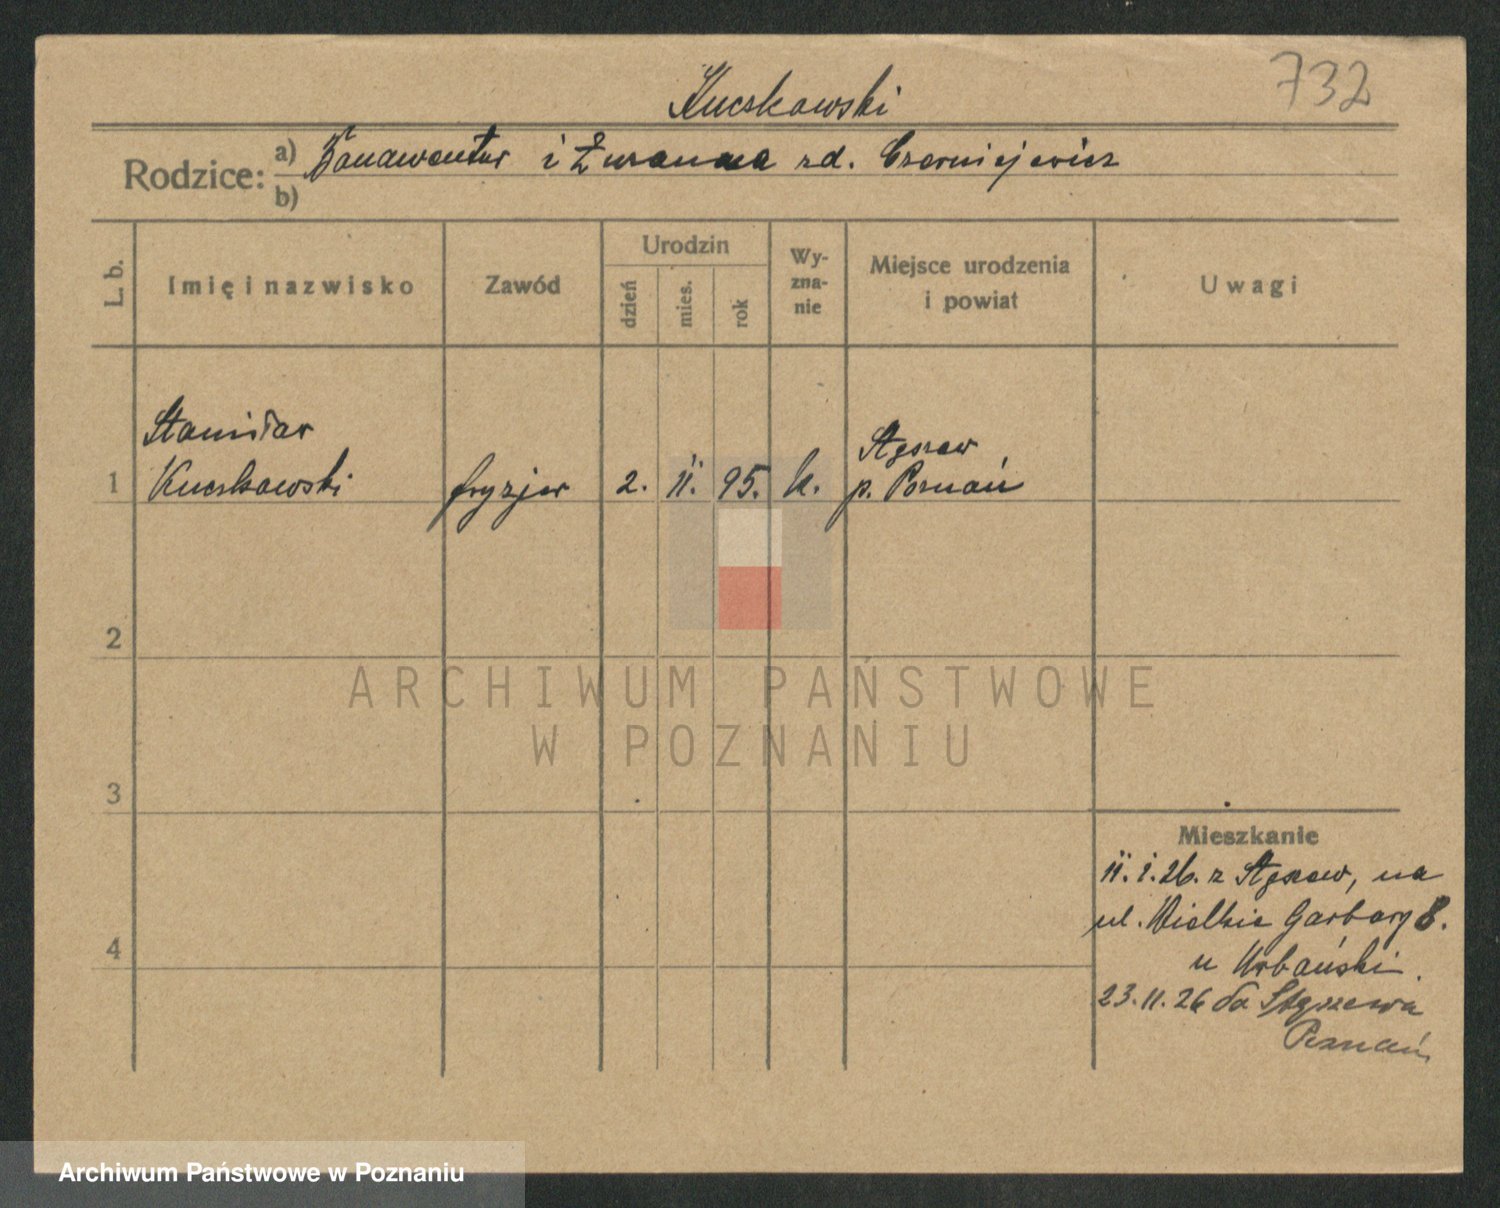 732
Kuczkowski
Rodzice: a) Bonawentur i Zuzanna zd. Czerniejewicz
b)
L. b. Imię i nazwisko Zawód Urodzin dzień mies. rok Wy-zna-nie Miejsce urodzenia i powiat Uwagi
Stanisław Stęszew
1 Kuczkowski fryzjer 2. II. 95. k. p. Poznań
2
3
4
Mieszkanie
11.1.26. z Stęszew, na
ul. Wielkie Garbary 8.
u Urbański.
23.11.26 do Stęszewa
Poznań
ARCHIWUM PAŃSTWOWE
W POZNANIU
Archiwum Państwowe w Poznaniu